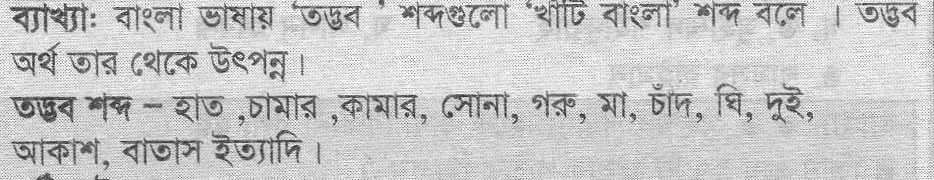 ব্যাখ্যা: বাংলা ভাষায় 'তদ্ভব ' শব্দগুলো 'খাঁটি বাংলা' শব্দ বলে । তদ্ভব
অর্থ তার থেকে উৎপন্ন ।
তদ্ভব শব্দ – হাত ,চামার ,কামার, সোনা, গরু, মা, চাঁদ, ঘি, দুই,
আকাশ, বাতাস ইত্যাদি ।